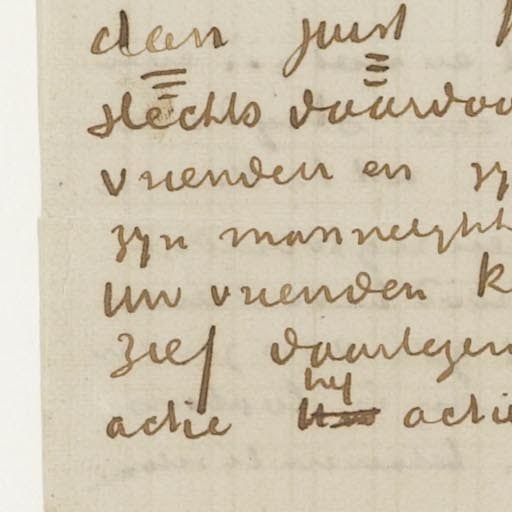 dan juist
slechts daardoo
vrienden en zy
zyn mannelykh
Uw vrienden k
zief daartegen
hy
actie actie